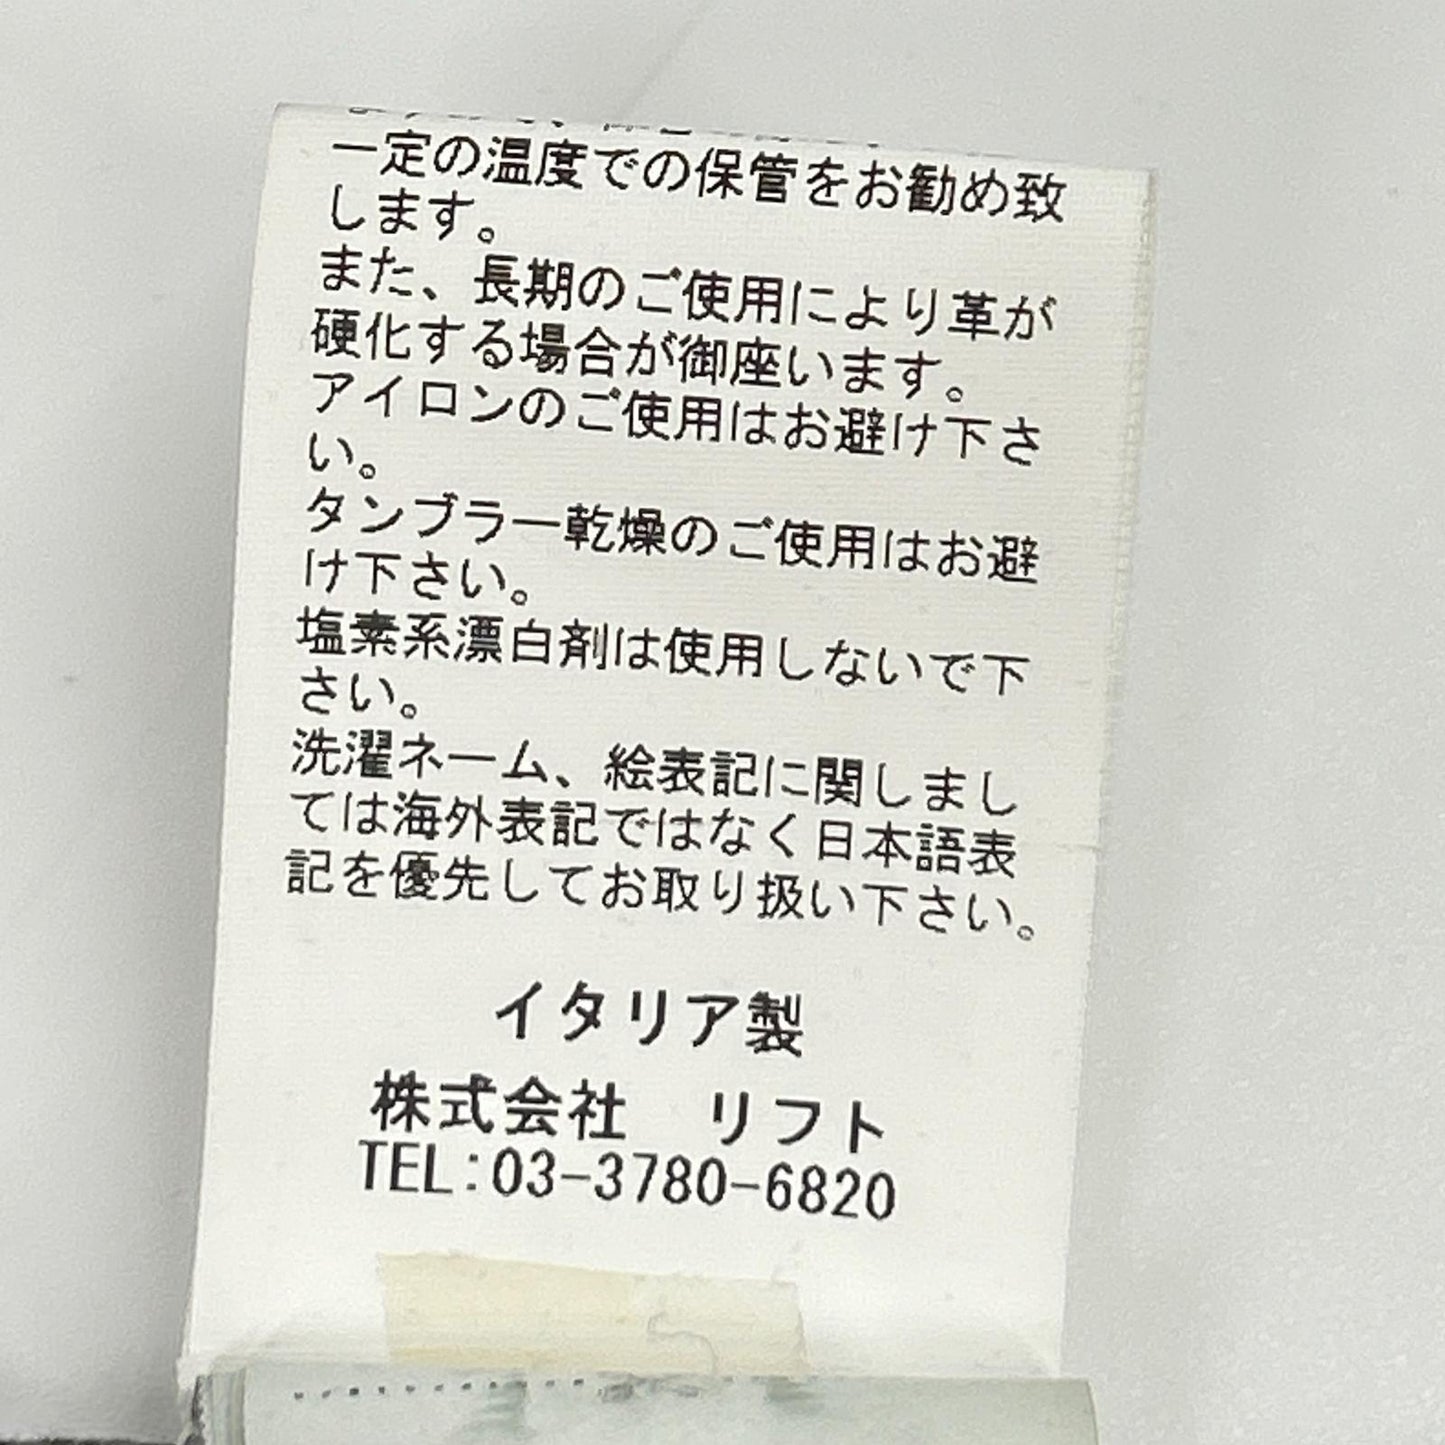 一定の温度での保管をお勧め致
します。
また、長期のご使用により革が
硬化する場合が御座います。
アイロンのご使用はお避け下さ
い。
タンブラー乾燥のご使用はお避
け下さい。
塩素系漂白剤は使用しないで下
さい。
洗濯ネーム、絵表記に関しまし
ては海外表記ではなく日本語表
記を優先してお取り扱い下さい。
イタリア製
株式会社　リフト
TEL:03-3780-6820